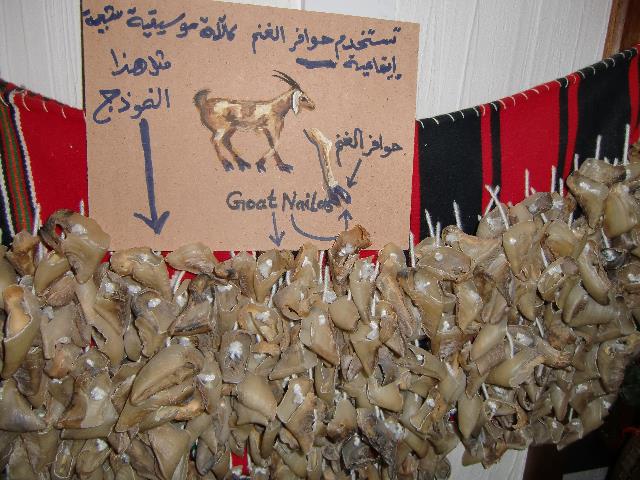 تستخدم حوافر الغنم كآلة موسيقية شعبية
إيقاعية
مثل هذا
النموذج
حوافر الغنم
Goat Nailes